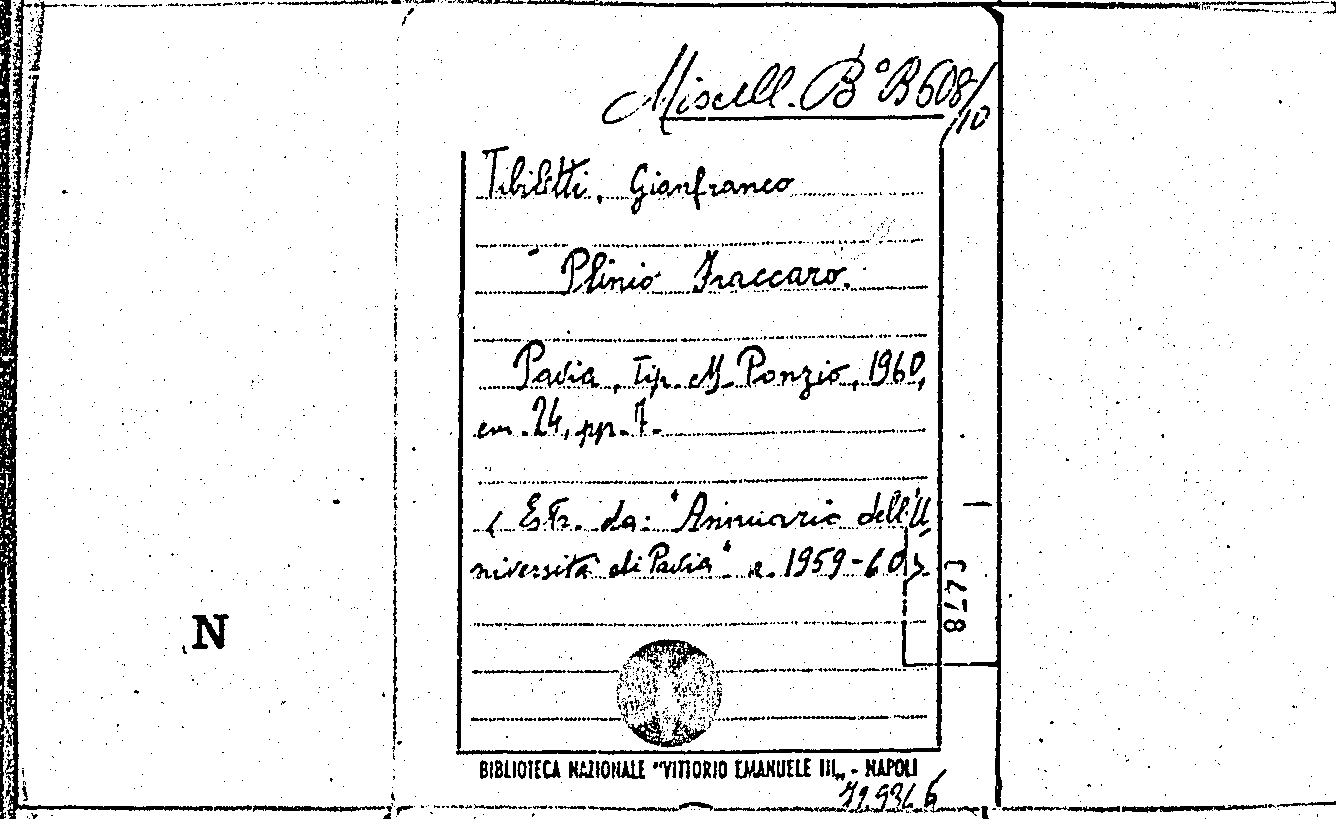 Miscell. Bª B608/
/10
Tibiletti, Gianfranco
Plinio Fraccaro.
Pavia, Tip. M. Ponzio, 1960,
cm. 24, pp. 7.
(Estr. da: "Annuario dell'U
niversità di Pavia" a. 1959-60)
N
BIBLIOTECA NAZIONALE "VITTORIO EMANUELE III„ - NAPOLI